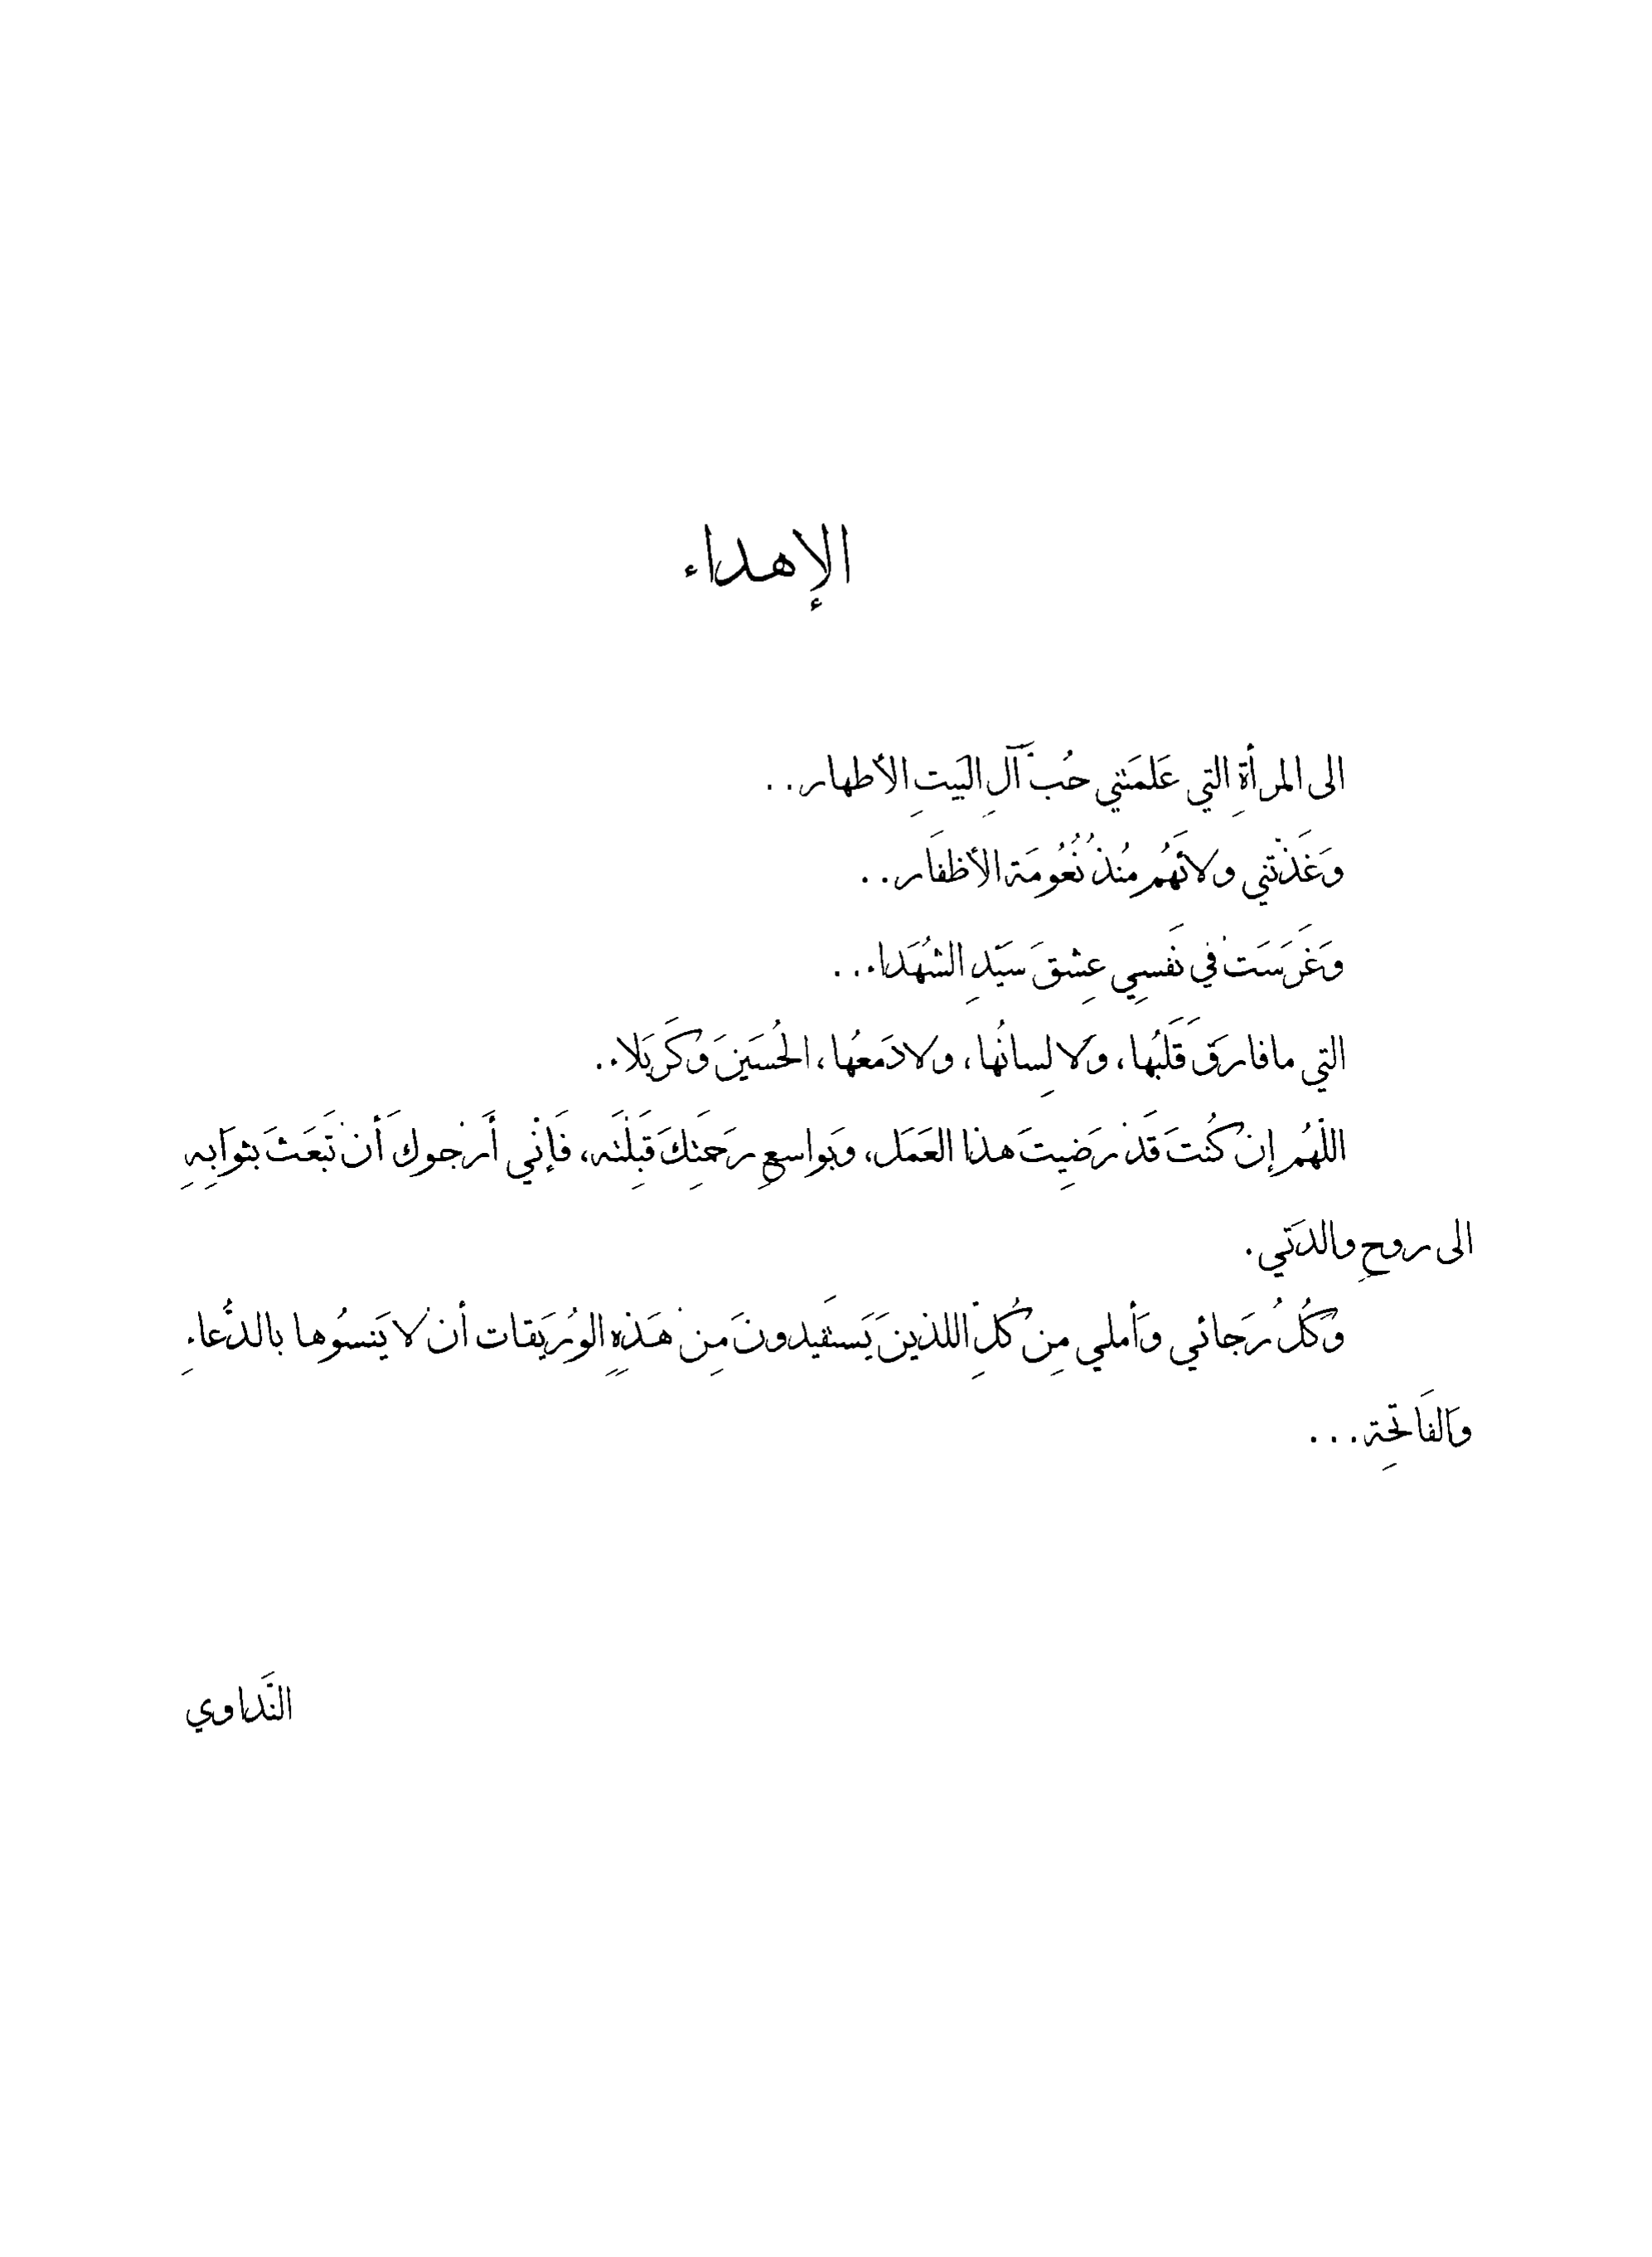 الإهداء
الى المرأةِ التي عَلمَتني حُبَّ آلِ البَيتِ الأطهار..
وَغَذّتني ولائَهُم مُنذُ نُعُومَة الأظفَار..
وَغَرَسَتْ في نَفسِي عِشقَ سَيّدِ الشُهَداء..
التي مافارقَ قَلبُها، وَلا لِسانُها، ولا دَمعُها، الحُسَينَ وكَربَلاء.
اللّهُم إن كُنتَ قَدْ رَضِيتَ هذا العَمَل، وَبَواسعِ رَحمَتِكَ قَبِلْتَه، فَإنّي أَرْجوكَ أنْ تَبعَثَ بثوَابِهِ
الى روحِ والدَتي.
وَكُلُ رَجائي وَأملي مِن كُلِّ اللذينَ يَستَفيدونَ مِنْ هَذِهِ الوُرَيقات أنْ لا يَنسُوها بالدُّعاءِ
وَالفَاتِحَة...
النَّداوي